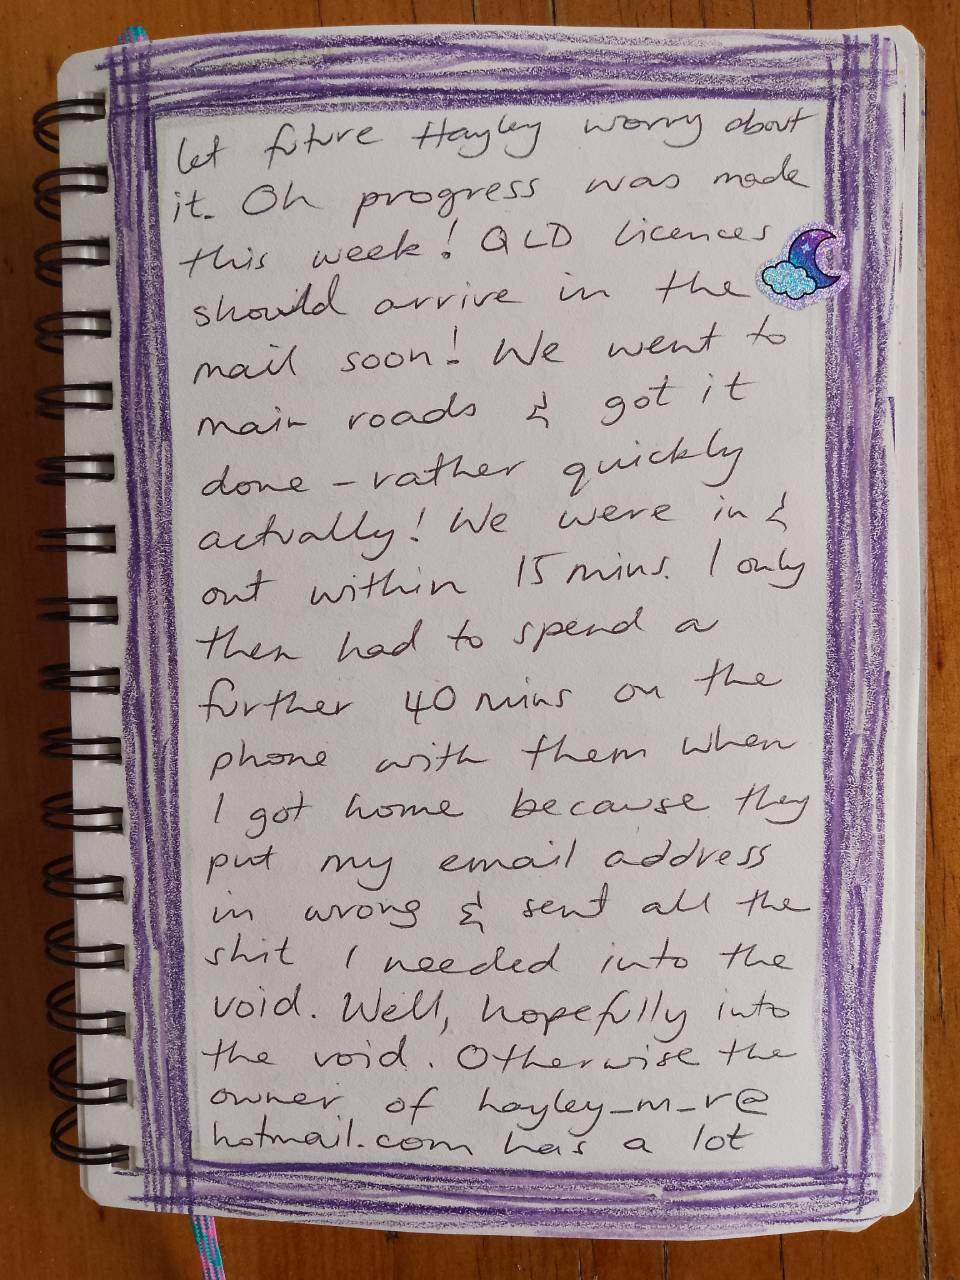 let future Hayley worry about
it. Oh progress was made
this week! QLD licences
should arrive in the
mail soon! We went to
main roads & got it
done - rather quickly
actually! We were in &
out within 15 mins. I only
then had to spend a
further 40 mins on the
phone with them when
I got home because they
put my email address
in wrong & sent all the
shit I needed into the
void. Well, hopefully into
the void. Otherwise the
owner of hayley_m_r@
hotmail.com has a lot